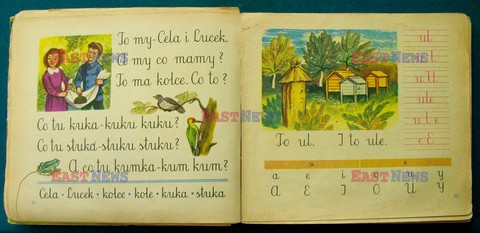 To my-Cela i Lucek.
A my co mamy?
To ma kolce. Co to?
Co tu kuka-kuku kuku?
Co tu stuka-stuku stuku?
A co tu kumka-kum kum?
Cela • Lucek • kolce • kole • kuka • stuka
EASTNEWS
EASTNEWS
EASTNEWS
To ul. I to ule.
u e
a e i o u y
A E I O U Y
EASTNEWS
EASTNEWS
EASTNEWS
ul
u l
u U
ule
u l e
e E